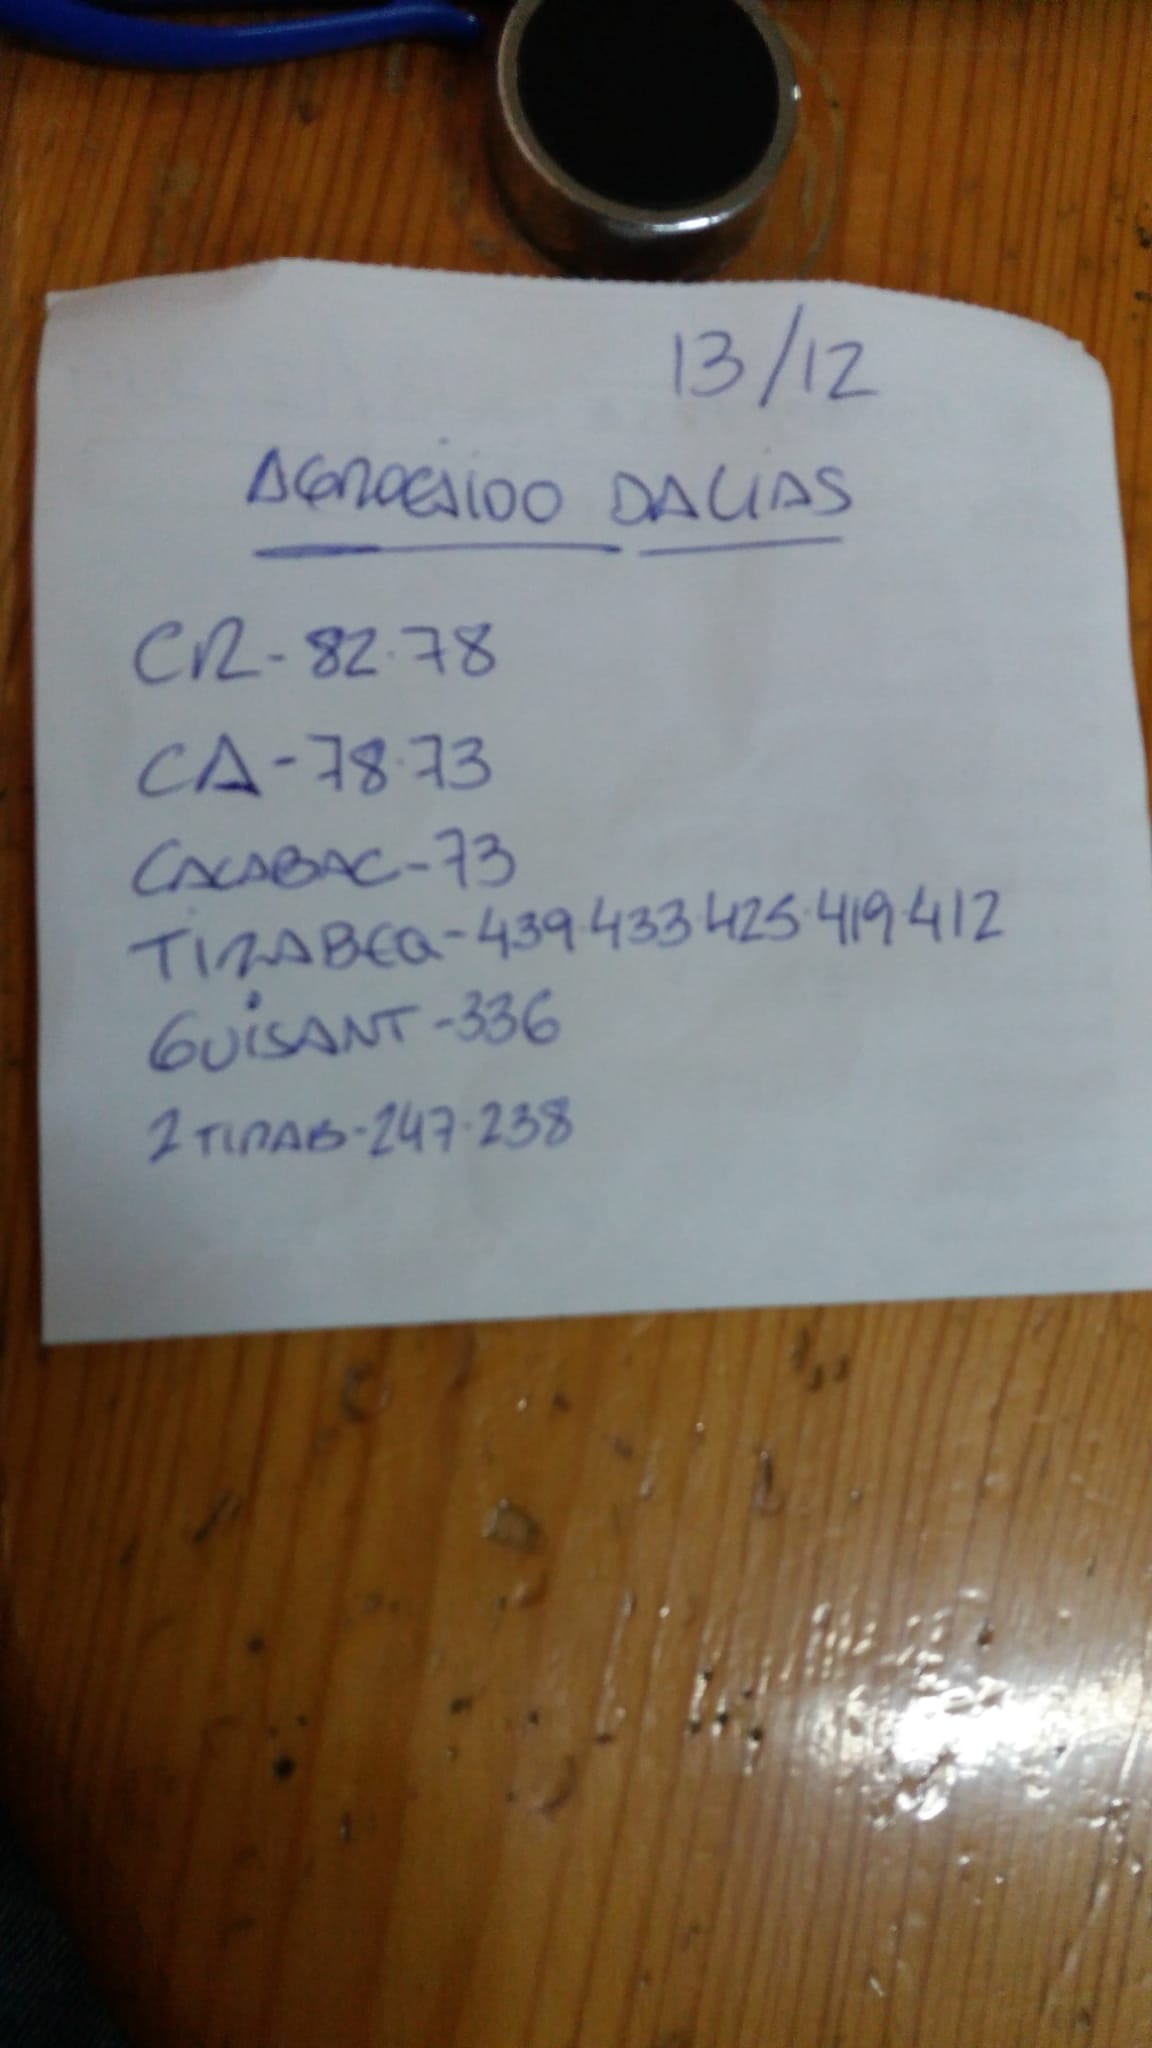 13/12
AGROEJIDO DALIAS
CR-82·78
CA-78·73
CALABAC-73
TIRABEQ-439·433·425·419·412
GUISANT-336
2 TIRAB-247·238